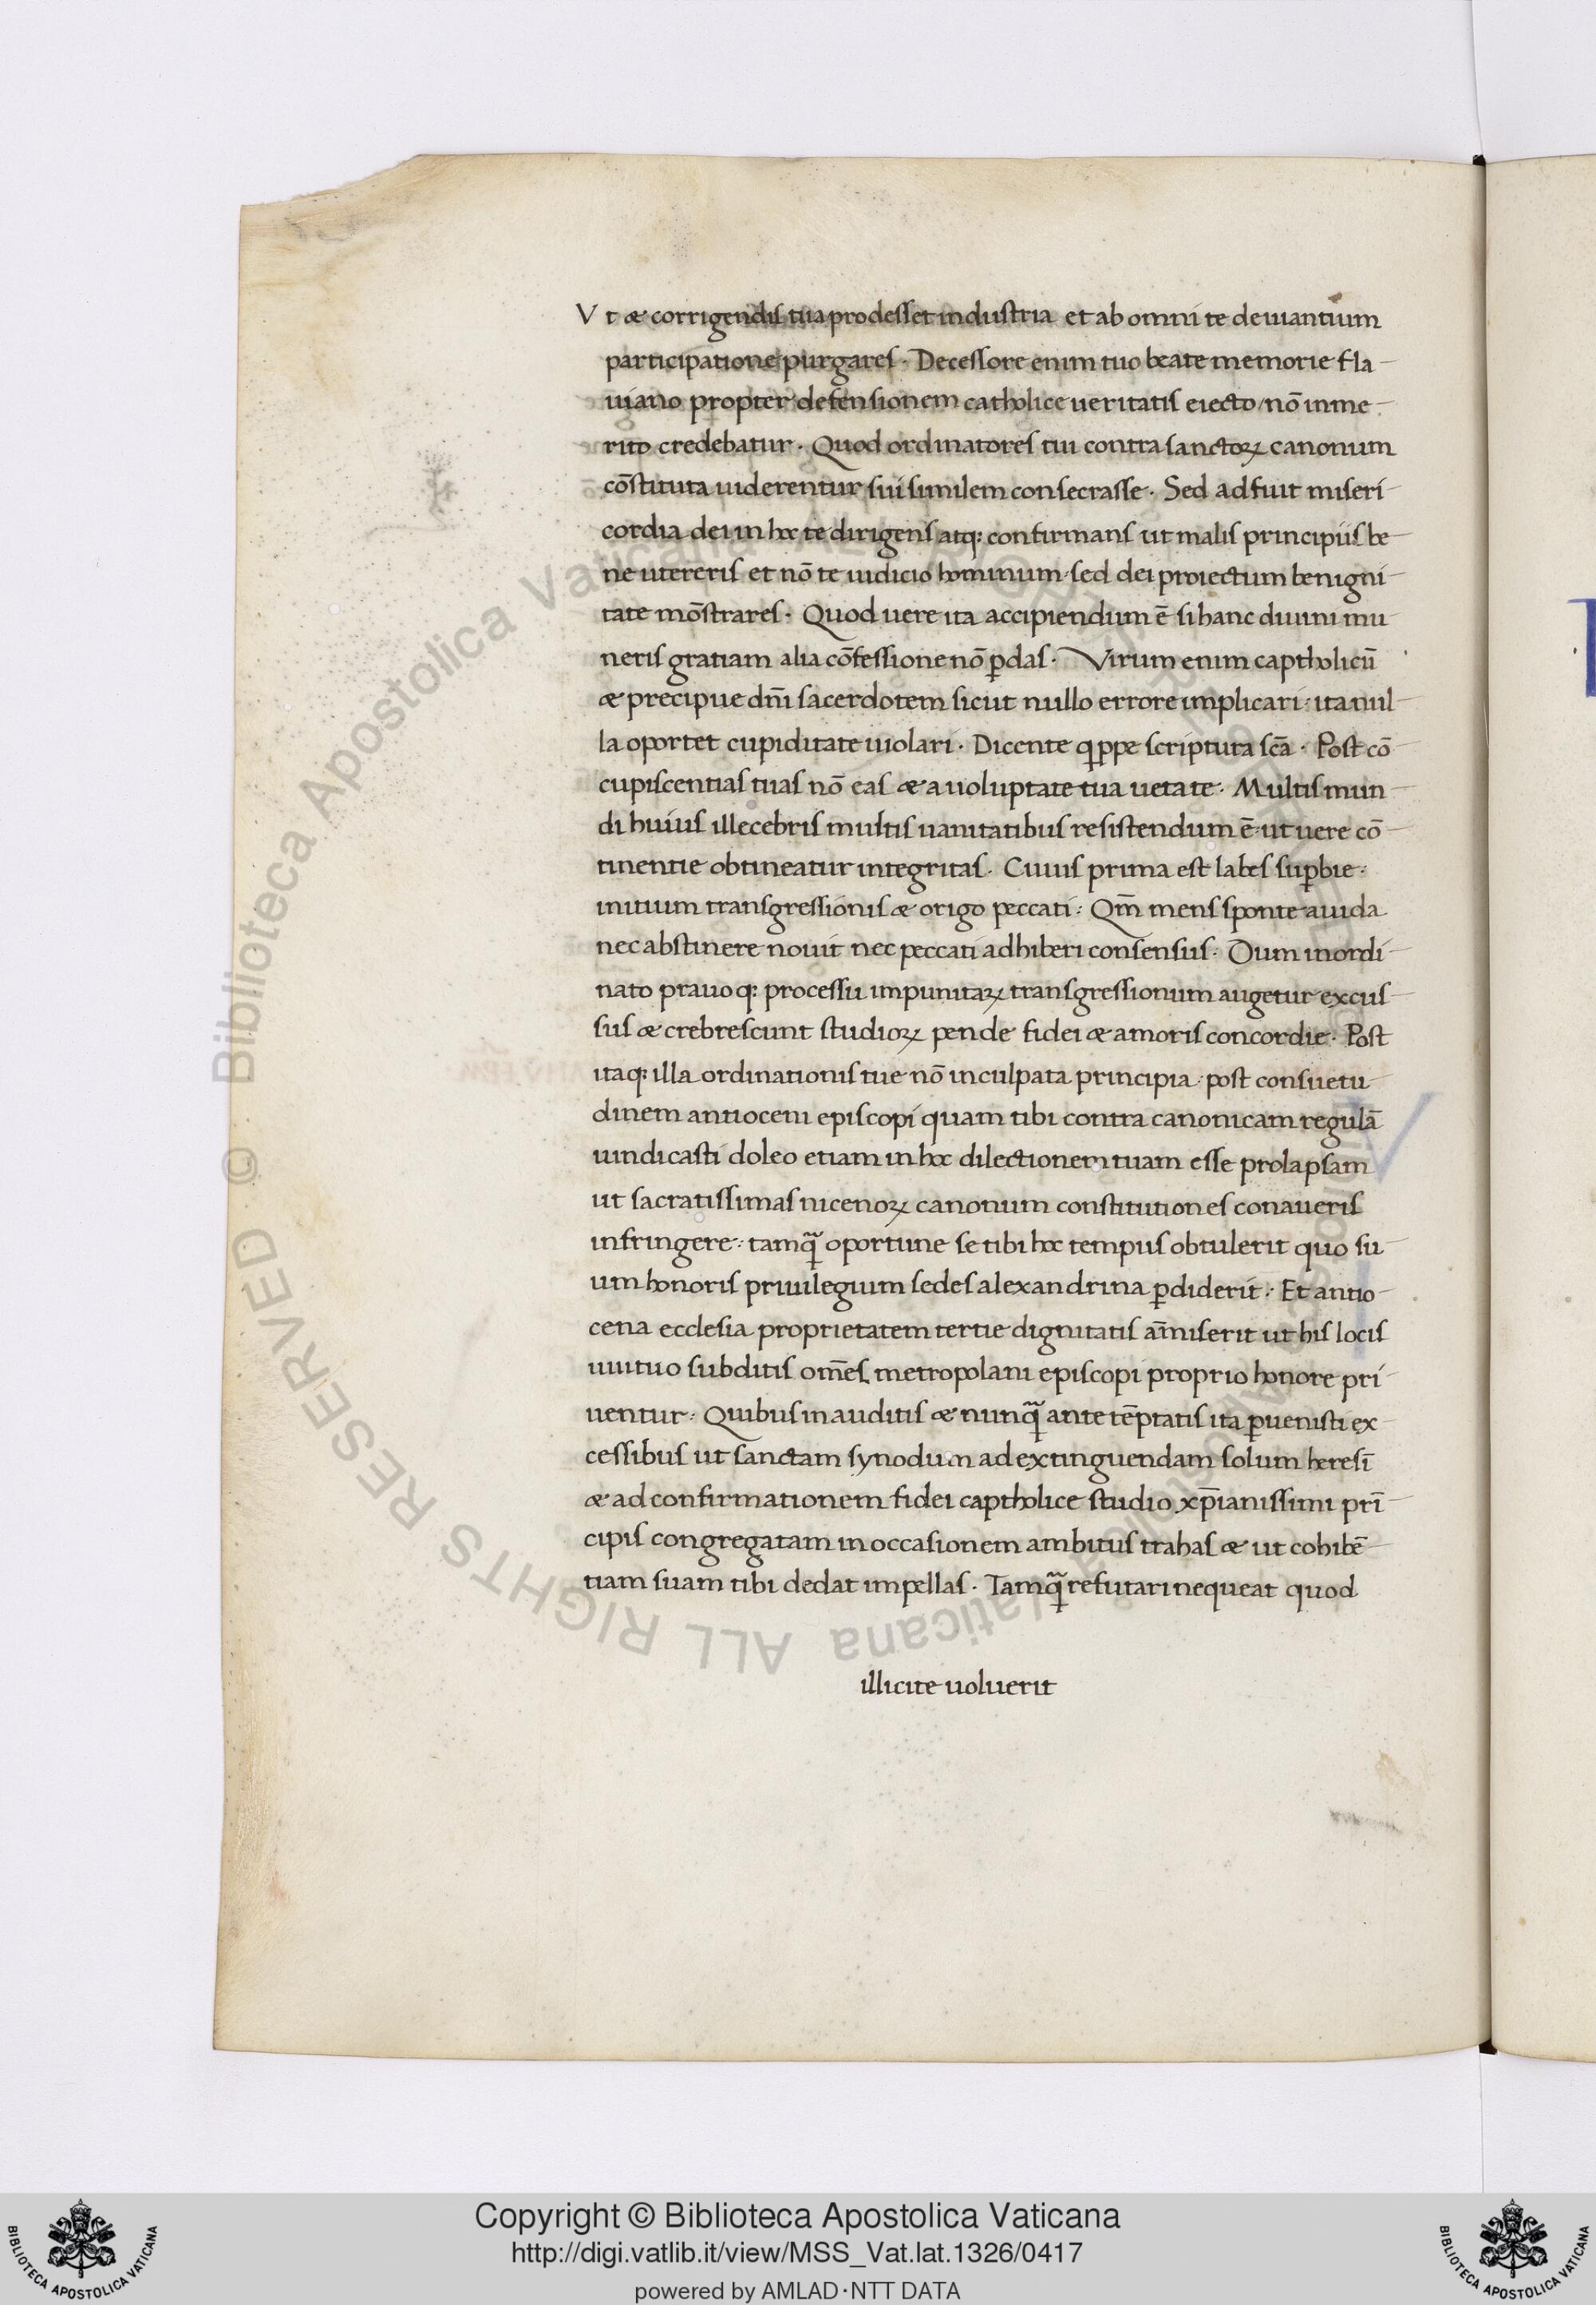 Vt æ corrigendis tua prodesset industria et ab omni te deuiantium
participatione purgares · Decessore enim tuo beate memorie fla-
uiano propter defensionem catholice ueritatis eiecto / nō inme-
rito credebatur · Quod ordinatores tui contra sanctoꝝ canonum
cōstituta uiderentur sui similem consecrasse · Sed adfuit miseri-
cordia dei in hoc te dirigens atq: confirmans ut malis principiis be-
ne utereris et nō te iudicio hominum · sed dei proiectum benigni-
tate mōstrares · Quod uere ita accipiendum ē si hanc diuini mu-
neris gratiam alia cōfessione nō ꝑdas · Virum enim captholicū
æ precipue dn̄i sacerdotem sicut nullo errore implicari : ita nul-
la oportet cupiditate uiolari · Dicente qppe scriptura sc̄a · Post cō-
cupiscentias tuas nō eas æ a uoluptate tua uetate · Multis mun-
di huius illecebris multis uanitatibus resistendum ē · ut uere cō-
tinentie obtineatur integritas · Cuius prima est labes suꝑbie ·
initium transgressionis æ origo peccati : Qm̄ mens sponte auida
nec abstinere nouit nec peccati adhiberi consensus · Dum inordi-
nato prauoq: processu impunitaꝝ transgressionum augetur excus-
sus æ crebrescunt studioꝝ pende fidei æ amoris concordie · Post
itaq: illa ordinationis tue nō inculpata principia · post consuetu-
dinem antioceni episcopi quam tibi contra canonicam regulā
uindicasti doleo etiam in hoc dilectionem tuam esse prolapsam
ut sacratissimas nicenoꝝ canonum constitutiones conaueris
infringere : tamqᷓ oportune se tibi hoc tempus obtulerit quo su-
um honoris priuilegium sedes alexandrina ꝑdiderit : Et antio-
cena ecclesia proprietatem tertie dignitatis am̄iserit ut his locis
uiutuo subditis om̄es metropolani episcopi proprio honore pri-
uentur : Quibus inauditis æ nunqᷓ ante tēptatis ita ꝑuenisti ex-
cessibus ut sanctam synodum ad extinguendam solum heresī
æ ad confirmationem fidei captholice studio xp̄ianissimi prī-
cipis congregatam in occasionem ambitus trahas æ ut cohibē-
tiam suam tibi dedat impellas · Tamqᷓ refutari nequeat quod
illicite uoluerit
© Biblioteca Apostolica Vaticana ALL RIGHTS RESERVED
Copyright © Biblioteca Apostolica Vaticana
http://digi.vatlib.it/view/MSS_Vat.lat.1326/0417
powered by AMLAD·NTT DATA
BIBLIOTECA APOSTOLICA VATICANA
BIBLIOTECA APOSTOLICA VATICANA